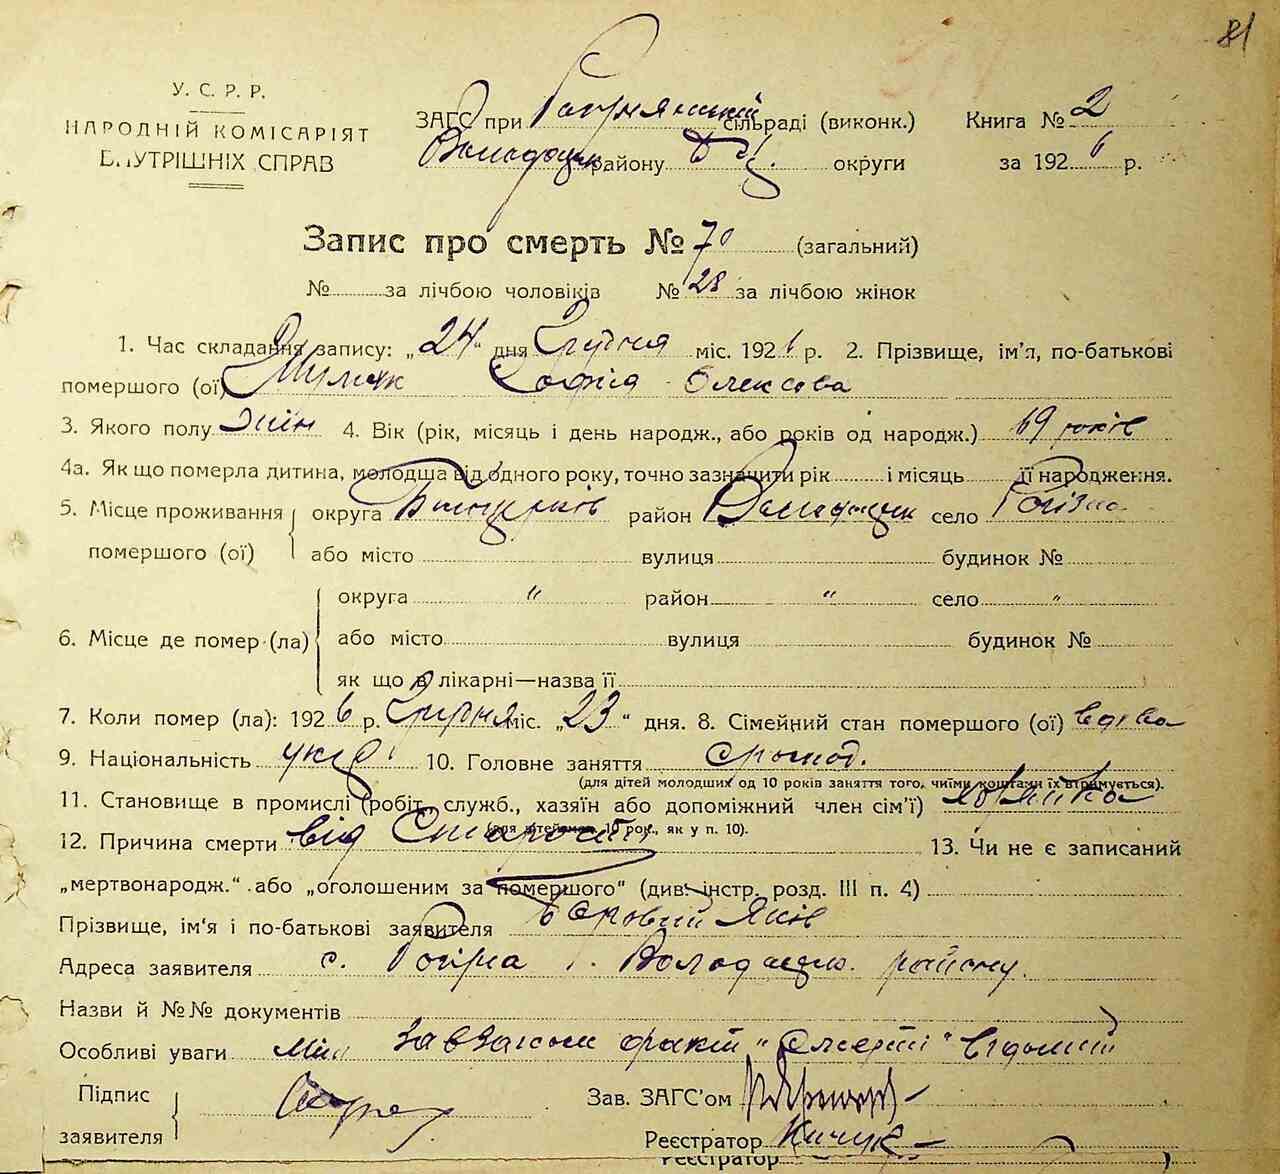 81
У. С. Р. Р.
НАРОДНІЙ КОМІСАРІЯТ
ВНУТРІШНІХ СПРАВ
ЗАГС при сільраді (виконк.) Книга № 2
району Б Ц. округи за 1926 р.
Запис про смерть № 70 (загальний)
№ за лічбою чоловіків № 28 за лічбою жінок
1. Час складання запису: „24“ дня Грудня міс. 1926 р. 2. Прізвище, ім'я, по-батькові
помершого (ої) Софія Олексова
3. Якого полу жін 4. Вік (рік, місяць і день народж., або років од народж.) 69 років
4а. Як що померла дитина, молодша від одного року, точно зазначити рік і місяць її народження.
5. Місце проживання округа Білоцерків район Володарськ село Рогізна
помершого (ої) або місто вулиця будинок №
округа " район " село "
6. Місце де помер (ла) або місто вулиця будинок №
як що в лікарні—назва її
7. Коли помер (ла): 1926 р. Грудня міс. „23“ дня. 8. Сімейний стан помершого (ої) вдова
9. Національність укр. 10. Головне заняття
(для дітей молодших од 10 років заняття того, чиїми коштами їх втримується).
11. Становище в промислі (робіт, служб., хазяїн або допоміжний член сім'ї)
(для дітей мол. 10 рок., як у п. 10).
12. Причина смерти від Старости 13. Чи не є записаний
„мертвонародж.“ або „оголошеним за помершого“ (див. інстр. розд. III п. 4)
Прізвище, ім'я і по-батькові заявителя Яків
Адреса заявителя с. Рогізна Володарськ. району.
Назви й №№ документів
Особливі уваги факт „Смерті“ відомий
Підпис
заявителя
Зав. ЗАГС'ом
Реєстратор Кичук
Реєстратор